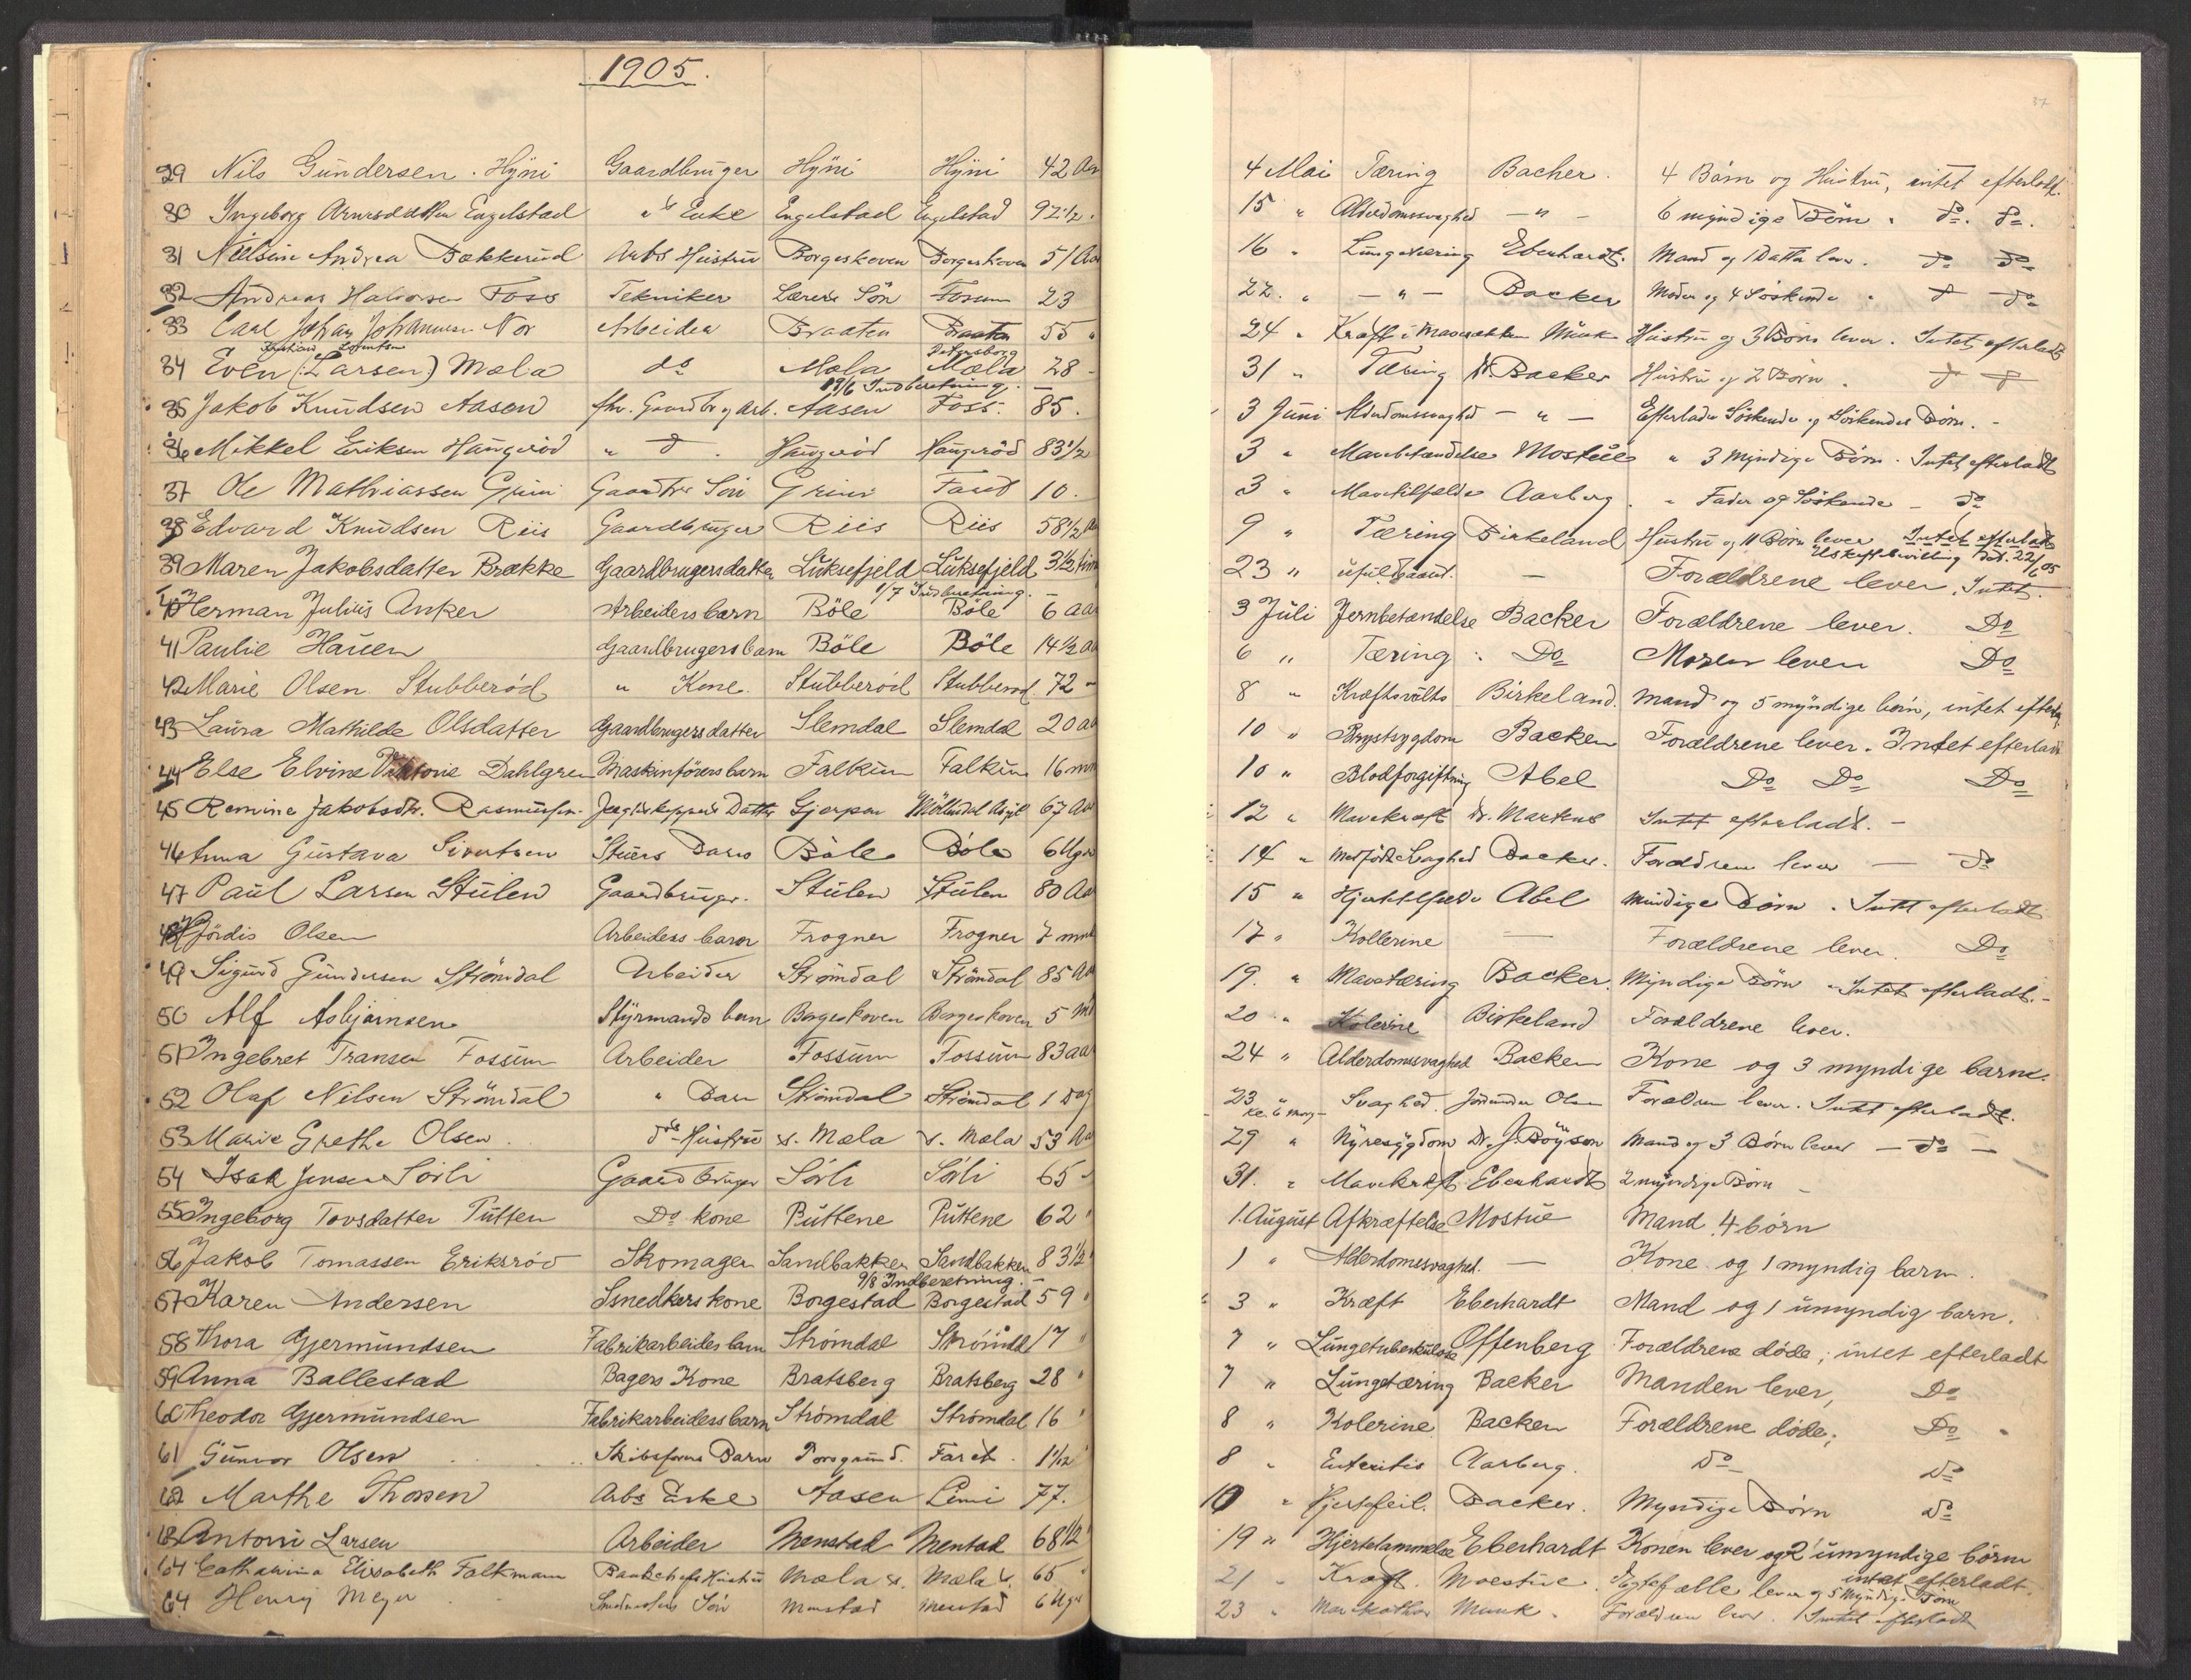 1905.
37
29 Nils Gundersen Hyni Gaardbruger Hyni Hyni 42 Aar 4 Mai Tæring Backer. 4 Børn og Hustru, intet efterladt.
30 Ingeborg Engelstad Enke Engelstad Engelstad 92 1/2 15 " Alderdomssvaghed — " — 6 myndige Børn. do. do.
31 Andrea Bakkerud Arbs Hustru Borgeskoven Borgeskoven 51 Aar 16 " Lungetæring Eberhardt. Mand og 1 Datter lever. do do
32 Andreas Halvorsen Foss Tekniker Lærers Sön Fossum 23 22. " — " — Backer Moder og 4 Söskende " do do
33 Carl Johan Johannesen Nor Arbeider Braaten Braaten 55 " 24 " Kræft i Mavesækken Munk Hustru og 3 Börn lever. Intet efterladt
34 Even (Larsen) Mæla do Mæla Mæla 28 31 " Tæring Dr. Backer Hustru og 2 Börn. do do
17/6 Indberetning.
35 Jakob Knudsen Aasen fhv. Gaardbr og Arb. Aasen Foss. 85. 3 Juni Alderdomssvaghed — " — Efterlader Söskende og Söskendes Börn. -
36 Mikkel Eriksen Haugeröd " do. Haugeröd Haugeröd 83 1/2 3 " Mavebetændelse Mostue " 3 Myndige Börn. Intet efterladt
37 Ole Mathiassen Grini Gaardbr Sön Grini 10. 3 " Mavetilfælde Aarberg. " Fader og Söskende - do
38 Edvard Knudsen Riis Gaardbruger Riis Riis 58 1/2 Aar 9 " Tæring Birkeland Hustru og 11 Börn lever Intet efterladt
Uskiftebevilling dat. 22/6 05
39 Maren Jakobsdatter Brække Gaardbrugersdatter Luksefjeld Luksefjeld 3 1/2 time 23 " ufuldbaaret. — Forældrene lever. Intet.
1/7 Indberetning.
40 Herman Julius Anker Arbeiders barn Böle Böle 6 aar 3 Juli Jernbetændelse Backer Forældrene lever. Do
41 Paulie Hauen Gaardbrugers barn Böle Böle 14 1/2 aar 6 " Tæring. Do Moren lever Do
42 Marie Olsen Stubberöd " Kone. Stubberöd Stubberöd 72 8 " Kræftsvülts Birkeland. Mand og 5 myndige börn, intet efterl.
43 Laura Mathilde Olsdatter Gaardbrugers datter Slemdal Slemdal 20 aar 10 " Brystsygdom Backer Forældrene lever. Intet efterladt
44 Else Elvine Viktorie Dahlgren Maskinförers barn Falkum Falkum 16 mnd 10 " Blodforgiftning Abel Do Do Do
45 Romine Jakobsdtr. Rasmussen Datter Gjerpen Möllendal Asyl 67 Aar 12 " Mavekræft Dr. Markus Intet efterladt. -
46 Anna Gustava Sivertsen Barn Böle Böle 6 Uger 14 " Medfödt Svaghed Backer. Forældrene lever — do
47 Paul Larsen Stulen Gaardbruger. Stulen Stulen 80 Aar 15 " Abel Myndige Börn. Intet efterladt
48 Hjördis Olsen Arbeiders barn Frogner Frogner 7 mnd 17 " Kollerine — Forældrene lever. Do
49 Sigurd Gundersen Strömdal Arbeider Strömdal Strömdal 85 Aar 19. " Mavetæring Backer. Myndige Börn. Intet efterladt. -
50 Alf Asbjörnsen Styrmands barn Borgeskoven Borgeskoven 5 Md 20 " Kolerine Birkeland Forældrene lever.
51 Ingebret Transen Fossum Arbeider Fossum Fossum 83 aar 24 " Alderdomssvaghed Backer Kone og 3 myndige barn.
52 Olaf Nilsen Strömdal " Barn Strömdal Strömdal 1 Dag 23 Kl. 6 morg Svaghed. Jordmoder Olsen Forældrene lever. Intet efterladt.
53 Marie Grethe Olsen do Hustru v. Mæla v. Mæla 53 Aar 29 " Nyresygdom Dr. J. Böyson Mand og 3 Börn lever — do —
54 Isak Jensen Sörli Gaardbruger Sörli Sörli 65 31. " Mavekræft Eberhardt 2 myndige Börn -
55 Ingeborg Tovsdatter Putten Do kone Puttene Puttene 62 " 1. August Afkræftelse Mostue Mand. 4 börn
56 Jakob Tomassen Eriksröd Skomager Sandbakken Sandbakken 83 1/2 1 " Alderdomssvaghed. — Kone og 1 myndig barn.
9/8 Indberetning. -
57 Karen Andersen Snedkers kone Borgestad Borgestad 59 " 3 " Kræft Eberhardt Mand og 1 umyndig barn.
58 Thora Gjermundsen Fabrikarbeiders barn Strömdal Strömdal 17 " 7 " Lungetuberkulose Offenberg Forældrene döde; intet efterladt
59 Anna Ballestad Bagers Kone Bratsberg Bratsberg 28 " 7 " Lungetæring Backer Manden lever, Do
60 Theodor Gjermundsen Fabrikarbeiders barn Strömdal Strömdal 16 " 8 " Kolerine Backer Forældrene döde; Do
61 Gunvor Olsen Skibsförers Barn Porsgrund. Faret. 1 1/12 8 " Enteritis Aarberg. Do Do
62 Marthe Thorsen Arbs Enke Aasen Limi 77. 10 " Hjertefeil. Backer. Myndige Börn Do
63 Antoni Larsen Arbeider Menstad Menstad 68 1/2 19 " Hjertelammelse Eberhardt Konen lever og 2 umyndige börn
intet efterladt.
64 Catharina Elisabeth Falkmann Bankchefs Hustru Mæla v. Mæla v. 65 21 " Kræft. Moestue. Ægtefælle lever og 5 Myndige Börn
64 Henry Meyer Sön Menstad Menstad 6 Uger 23 " Munk. Forældrene lever. Intet efterladt